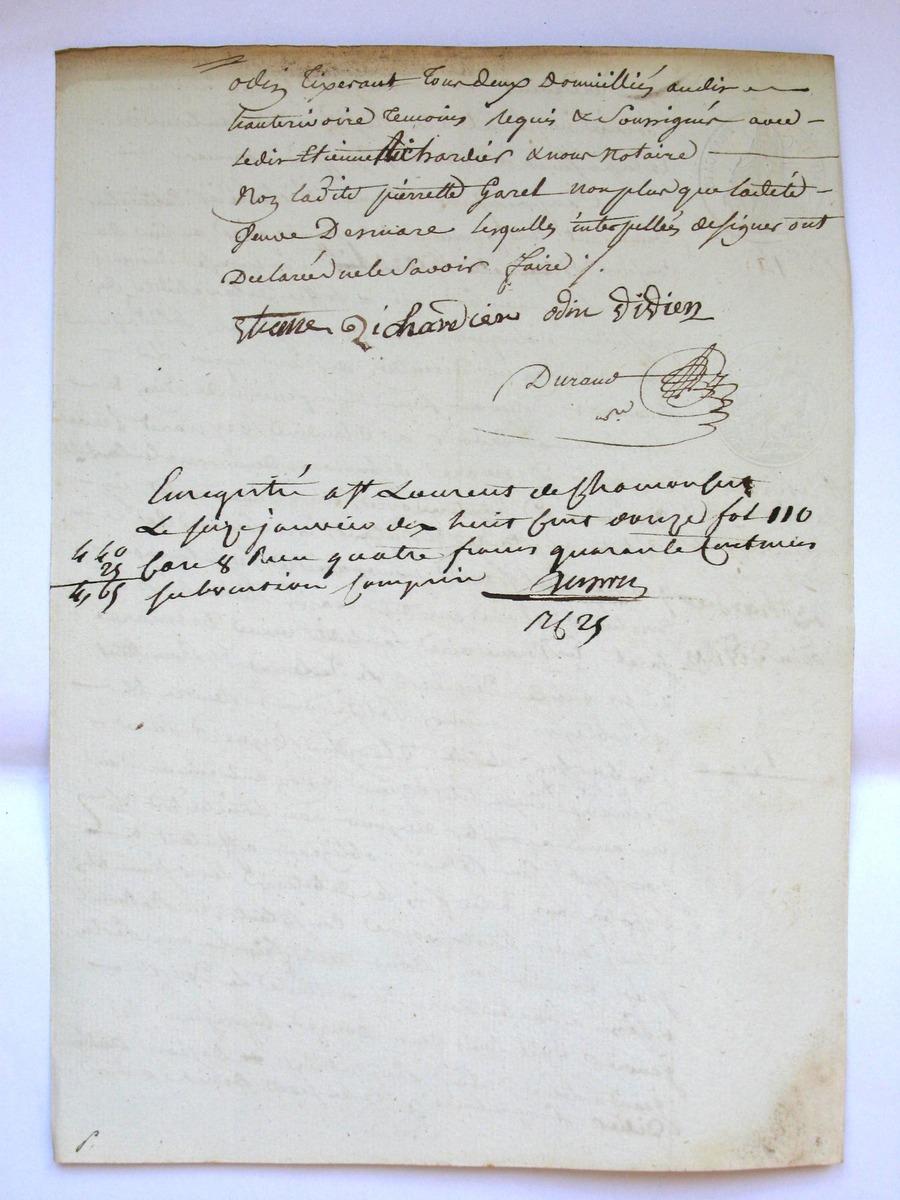 odin tixerant tous deux domicilliés audit
hauterivoire temoins requis & Soussignés avec
ledit Etienne Richardier & nous Notaire
Non ladite pierrette Garel non plus que ladite
veuve lesquelles interpellées de signer ont
Declaré ne le Savoir faire ./.
Etienne Richardier odin Didier
Durand
nre
Enregistré a St Laurent de Chamousset
Le seize janvier dix huit cent douze fol 110
4 40 Case 8 Reçu quatre francs quarante Centimes
25
4,65 subvention comprise